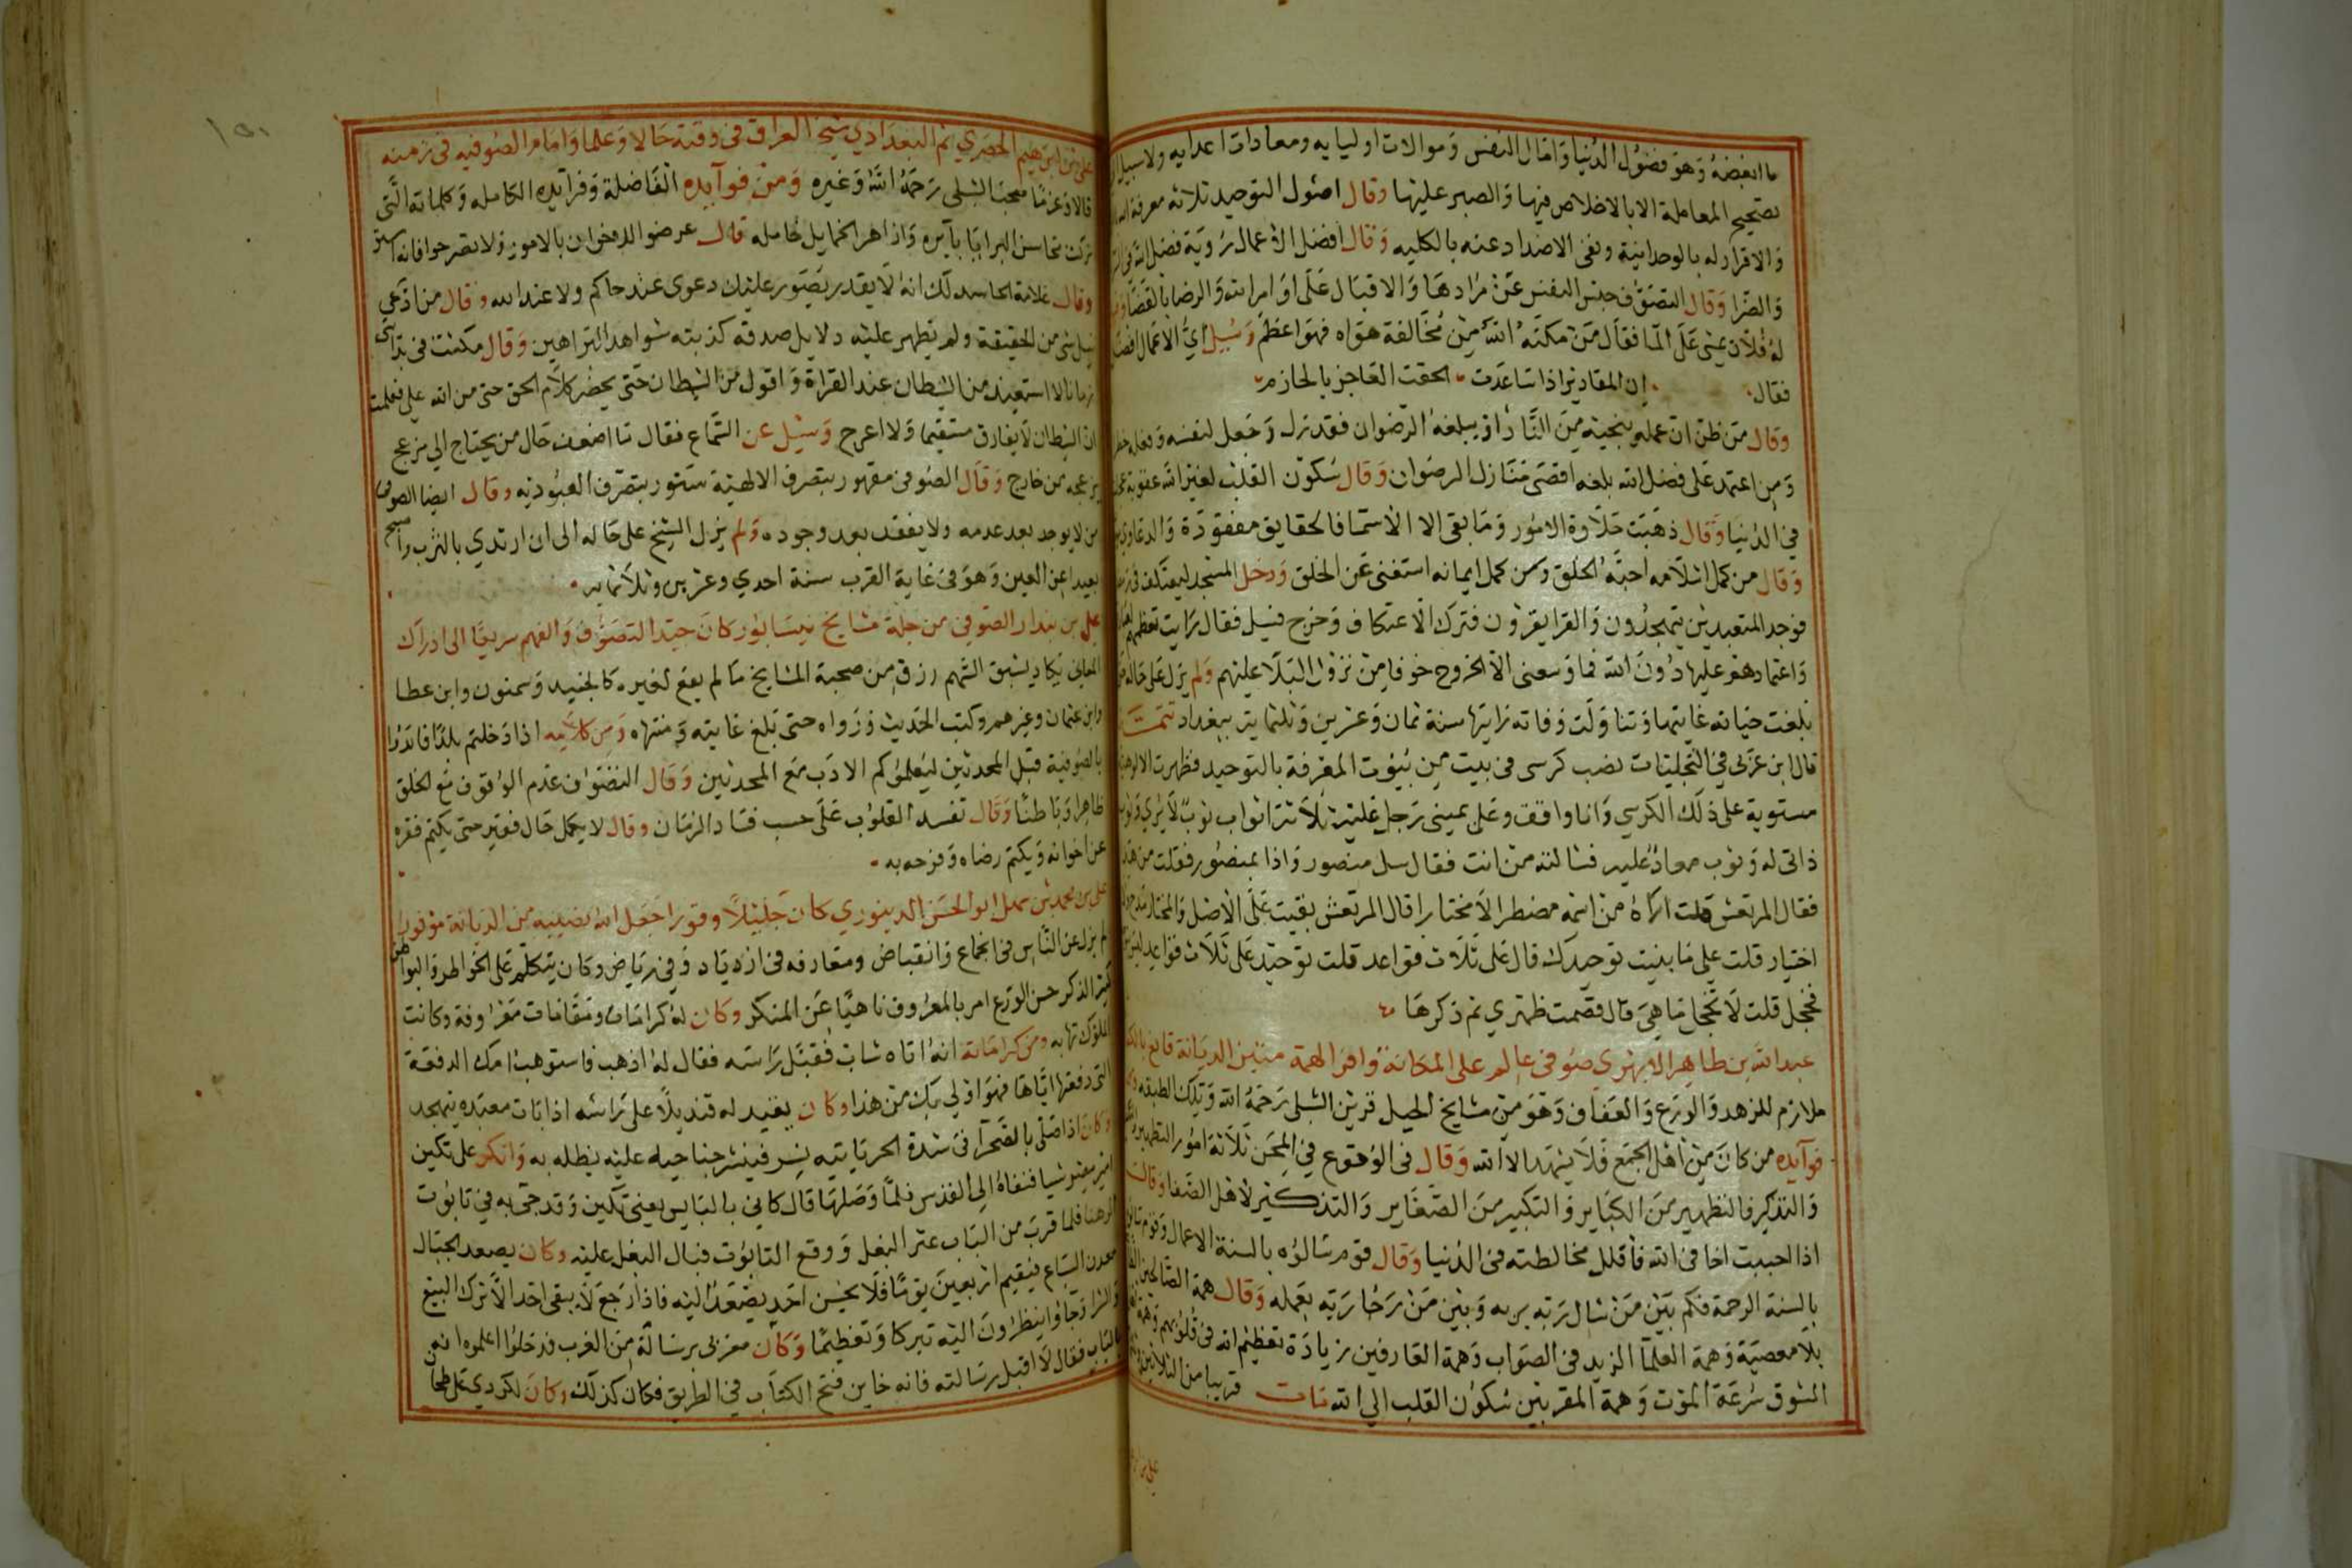 ما ابغضه وهو فضول الدنيا وامال النفس وموالات اوليايه ومعادات اعدايه ولا سبيل
تصحيح المعاملة الا بالاخلاص فيها والصبر عليها وقال اصول التوحيد ثلاثه معرفة
والاقرار له بالوحدانية ونفى الاضداد عنه بالكليه وقال افضل الاعمال روية فضل الله
والضرا وقال التصوف حبس النفس عن مرادها والاقبال على اوامر الله والرضا بالقضا
له فلان يمشى على الما فقال من مكنه الله من مخالفة هواه فهو اعظم وسيل اى الاعمال افضل
فقال ان المقادير اذا ساعدت الحقت العاجز بالحازم
وقال من ظن ان عمله ينجيه من النار او يبلغه الرضوان فقد نزل وجعل لنفسه وفعله
ومن اعتمد على فضل الله بلغه اقصى منازل الرضوان وقال سكون القلب لغير الله عقوبة
في الدنيا وقال ذهبت حلاوة الامور وما بقى الا الاسما فالحقايق مفقودة والدعاوى
وقال من كمل اسلامه احبه الخلق ومن كمل ايمانه استغنى عن الخلق ودخل المسجد ليعتكف فى
فوجد المتعبدين يتهجدون والقرا يقرون فترك الاعتكاف وخرج فسيل فقال رايت تعظيمهم
واعتمادهم عليها دون الله فما وسعنى الا الخروج خوفا من نزول البلا عليهم ولم يزل على حاله
بلغت حياته غايتها وتناولت وفاته رايتها سنة ثمان وعشرين وثلثمايه ببغداد تتمت
قال ابن عربى في التجليات نصب كرسى فى بيت من بيوت المعرفة بالتوحيد فظهرت الالوهية
مستوية على ذلك الكرسي وانا واقف وعلى يمينى رجل عليه ثلاثة اثواب ثوب لا يرى وثوب
ذاتى له وثوب معار عليه فسالته من انت فقال سل منصور واذا بمنصور فقلت من هذا
فقال المرتعش قلت اراه من اسمه مضطرا لا مختارا قال المرتعش بقيت على الاصل والمختار مدع ولا
اختيار قلت على ما بنيت توحيدك قال على ثلاث قواعد قلت توحيد على ثلاث قواعد ليس
فخجل قلت لا تخجل ما هى قال قصمت ظهري ثم ذكرها
عبد الله بن طاهر الابهرى صوفى عالم على المكانة وافر الهمة متين الديانة قايم
ملازم للزهد والورع والعفاف وهو من مشايخ الجبل قرين الشبلى رحمة الله وتلك الطبقه
فوايده من كان من اهل الجمع فلا يشهد الا الله وقال فى الوقوع في المحن ثلاثة امور التطهير
والتذكير فالتطهير من الكباير والتكبير من الصغاير والتذكير لاهل الصفا وقال
اذا احببت اخا فى الله فاقلل مخالطته فى الدنيا وقال قوم سالوه بالسنة الاعمال وقوم
بالسنة الرحمة فكم بين من سال ربه بربه وبين من رجا ربه بعمله وقال همة الصالحين
بلا معصية وهمة العلما المزيد فى الصواب وهمة العارفين زيادة تعظيم الله فى قلوبهم وهمة
الشوق سرعة الموت وهمة المقربين سكون القلب الي الله مات قريبا من الثلاثين
على بن ابرهيم الحصري ثم البغدادي شيخ العراق فى وقته حالا وعلما وامام الصوفيه فى زمنه
صحب الشبلى رحمه الله وغيره ومن فوايده الفاضلة وفرايده الكامله وكلماته التى
محاسن البرايا باتيره وازاهر الخمايل خامله قال عرضوا الدعوان بالامور ولا تصرحوا فانه استر
وقال علامة الحاسد لك انه لا يقدر يتصور عليك دعوى عند حاكم ولا عند الله وقال من ادعي
شى من الحقيقة ولم تظهر عليه دلايل صدقه كذبته شواهد البراهين وقال مكثت فى بدايتى
زمانا لا استعيذ من الشيطان عند القراة واقول من الشيطان حتى يحضر كلام الحق حتى من الله على فعلمت
ان الشيطان لا يفارق مستقيما ولا اعرج وسيل عن السماع فقال ما اضعف حال من يحتاج الى مزعج
يزعجه من خارج وقال الصوفى مقهور بتصرف الالهية مستور بتصرف العبوديه وقال ايضا الصوفى
من لا يوجد بعد عدمه ولا يفقد بعد وجوده ولم يزل الشيخ على حاله الى ان ارتدي بالترب واصبح
بعيدا عن العين وهو فى غاية القرب سنة احدي وعشرين وثلاثمايه
على بن بندار الصوفي من جلة مشايخ نيسابور كان جيد التصوف والفهم سريعا الى ادراك
المعانى يكاد يسبق السهم رزق من صحبة المشايخ ما لم يقع لغيره كالجنيد وسمنون وابن عطا
وابن عثمان وغيرهم وكتب الحديث ورواه حتى بلغ غايته ومنتهاه ومن كلامه اذا دخلتم بلدا فابدوا
بالصوفية قبل المحدثين ليعلموكم الادب مع المحدثين وقال التصوف عدم الوقوف مع الخلق
ظاهرا وباطنا وقال تفسد القلوب على حسب فساد الزمان وقال لا يكمل حال فقير حتى يكتم فقره
عن اخوانه ويكتم رضاه وفرحه به
على بن محمد بن سهل ابو الحسن الدينوري كان جليلا وقورا جعل الله نصيبه من الديانة موفورا
لم يزل عن الناس فى انجماع وانقباض ومعارفه فى ازدياد وفي رياض وكان يتكلم على الخواطر والبواطن
كثير الذكر حسن الورع امر بالمعروف ناهيا عن المنكر وكان له كرامات ومقامات معروفة وكانت
الملوك تهابه ومن كراماته انه اتاه شاب فقبل راسه فقال له اذهب فاستوهب امك الدفعة
التى دفعتها اياها فهو اولى بك من هذا وكان يقيد له قنديلا على راسه اذا بات معبده يتهجد
وكان اذا صلى بالصحرآ فى شدة الحر ياتيه نسر فينشر جناحيه عليه يظله به وانكر على تكين
امير شيا فنفاه الى القدس فلما وصلها قال كانى بالبايس يعنى تكين وقد جى به في تابوت
الى هنا فلما قرب من الباب عثر البغل ووقع التابوت فبال البغل عليه وكان يصعد الجبال
معدن السباع فيقيم اربعين يوما فلا يحسن احد يصعد اليه فاذا رجع لا يبقى احد الا ترك البيع
والشرا وجاوا ينظرون اليه تبركا وتعظيما وكان مغربى برسالة من الغرب فدخلوا اعلموه انه
بالباب فقال لا اقبل رسالته فانه خاين فتح الكتاب في الطريق فكان كذلك وكان لكردي